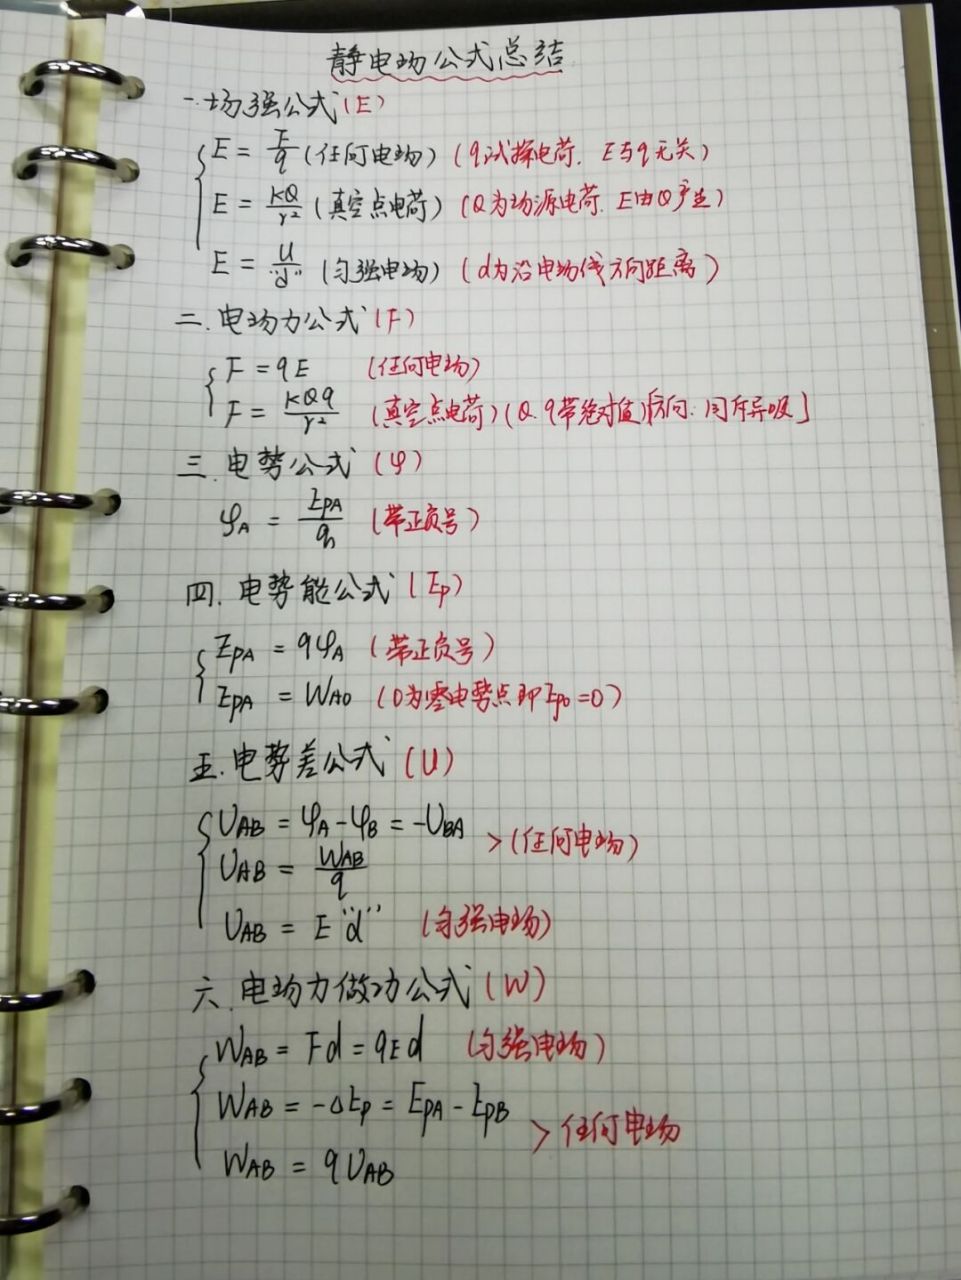 静电场公式总结
一.场强公式(E)
E = F/q (任何电场) (q试探电荷. E与q无关)
E = KQ/r² (真空点电荷) (Q为场源电荷. E由Q产生)
E = U/"d" (匀强电场) (d为沿电场线方向距离)
二.电场力公式(F)
F = qE (任何电场)
F = KQq/r² (真空点电荷) (Q.q带绝对值) 方向:同斥异吸
三.电势公式(φ)
φA = EPA/q (带正负号)
四.电势能公式(Ep)
EPA = qφA (带正负号)
EPA = WAO (O为零电势点即Epo=0)
五.电势差公式(U)
UAB = φA-φB = -UBA
UAB = WAB/q
>(任何电场)
UAB = E"d" (匀强电场)
六.电场力做功公式(W)
WAB = Fd = qEd (匀强电场)
WAB = -ΔEp = EPA - EPB
WAB = qUAB
>任何电场